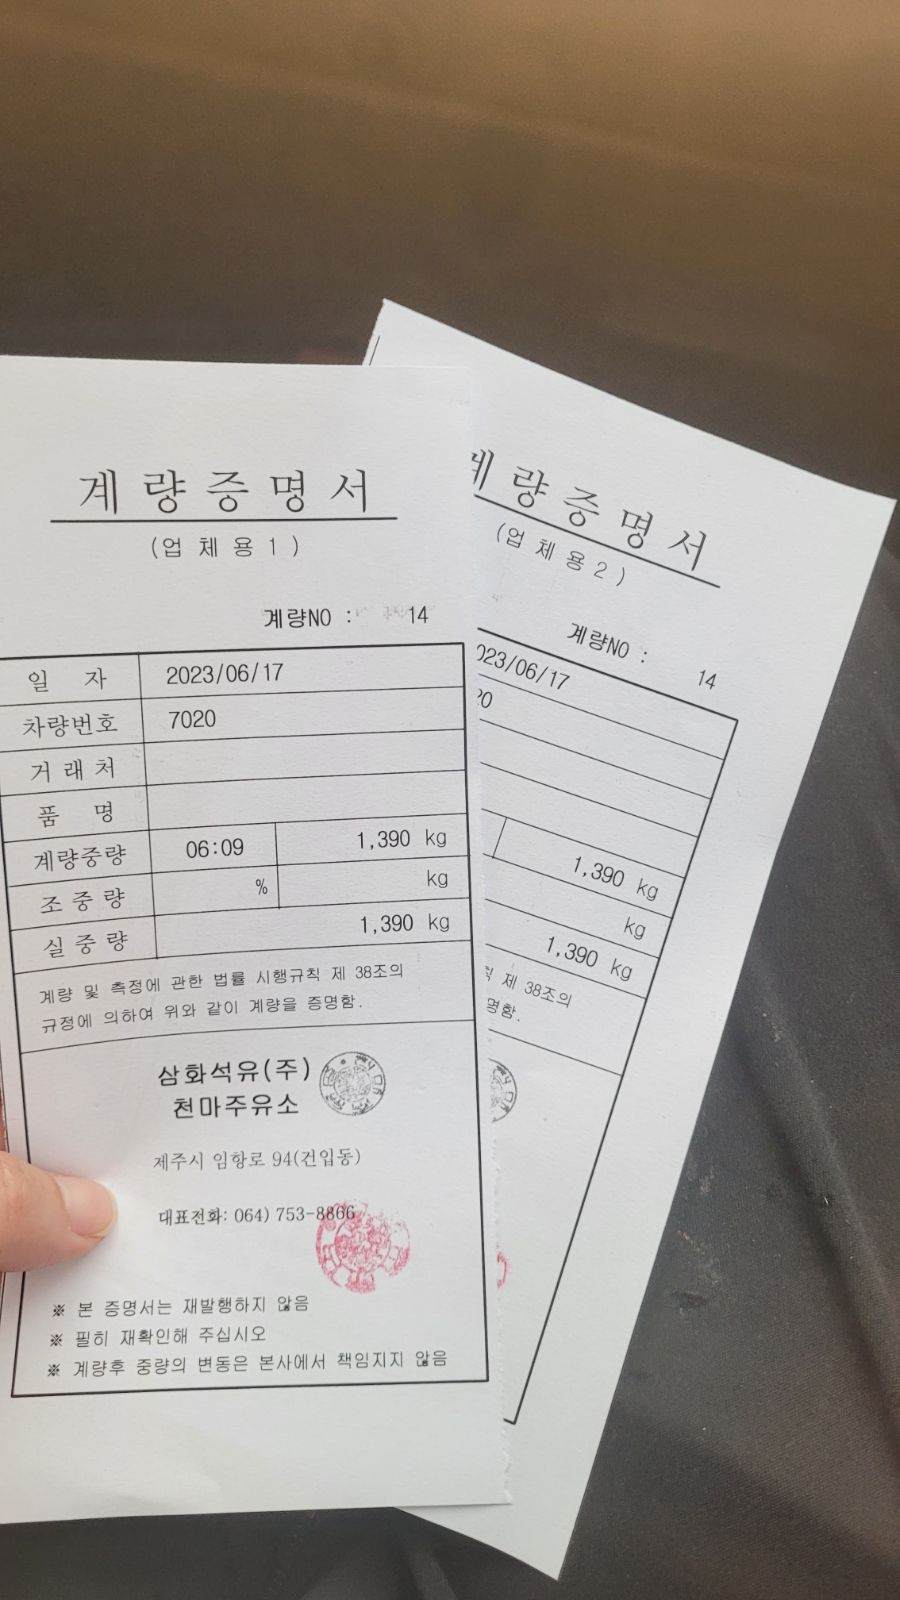 계량증명서
(업 체 용 1 )
계량NO : 14
일 자 2023/06/17
차량번호 7020
거 래 처
품 명
계량중량 06:09 1,390 kg
조 중 량 % kg
실 중 량 1,390 kg
계량 및 측정에 관한 법률 시행규칙 제 38조의
규정에 의하여 위와 같이 계량을 증명함.
삼화석유(주)
천마주유소
제주시 임항로 94(건입동)
대표전화: 064) 753-8866
※ 본 증명서는 재발행하지 않음
※ 필히 재확인해 주십시오
※ 계량후 중량의 변동은 본사에서 책임지지 않음
계량증명서
(업 체 용 2 )
계량NO : 14
023/06/17
20
1,390 kg
kg
1,390 kg
칙 제 38조의
명함.